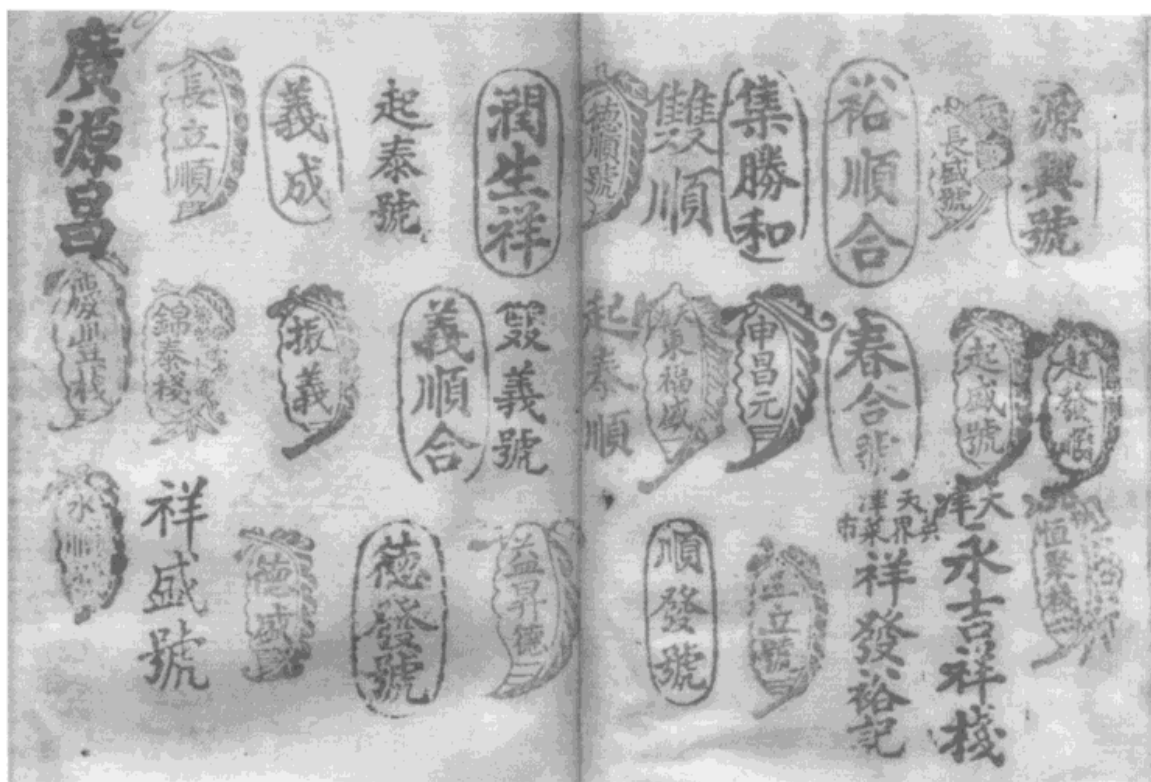 源興號
長盛號
裕順合
集勝和
雙順
德順號
潤生祥
起泰號
義成
長立順
廣源昌
起盛號
春合號
申昌元
東福盛
起泰順
義號
義順合
振義
錦泰棧
慶豊栈
恒聚棧
天津
永吉祥棧
天津
英界菜市
祥發裕記
立號
順發號
益昇德
德發號
德盛
祥盛號
永順